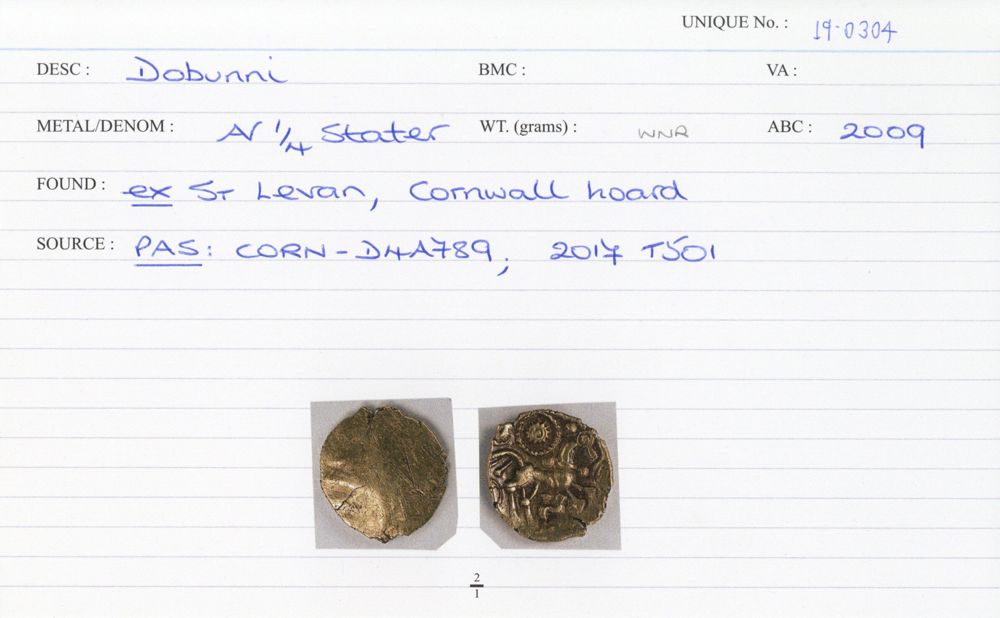 UNIQUE No. : 19-0304
DESC : Dobunni BMC : VA :
METAL/DENOM : AV 1/4 Stater WT. (grams) : WNR ABC : 2009
FOUND : ex St Levan, Cornwall hoard
SOURCE : PAS: CORN-D4A789, 2017 T501
2
1